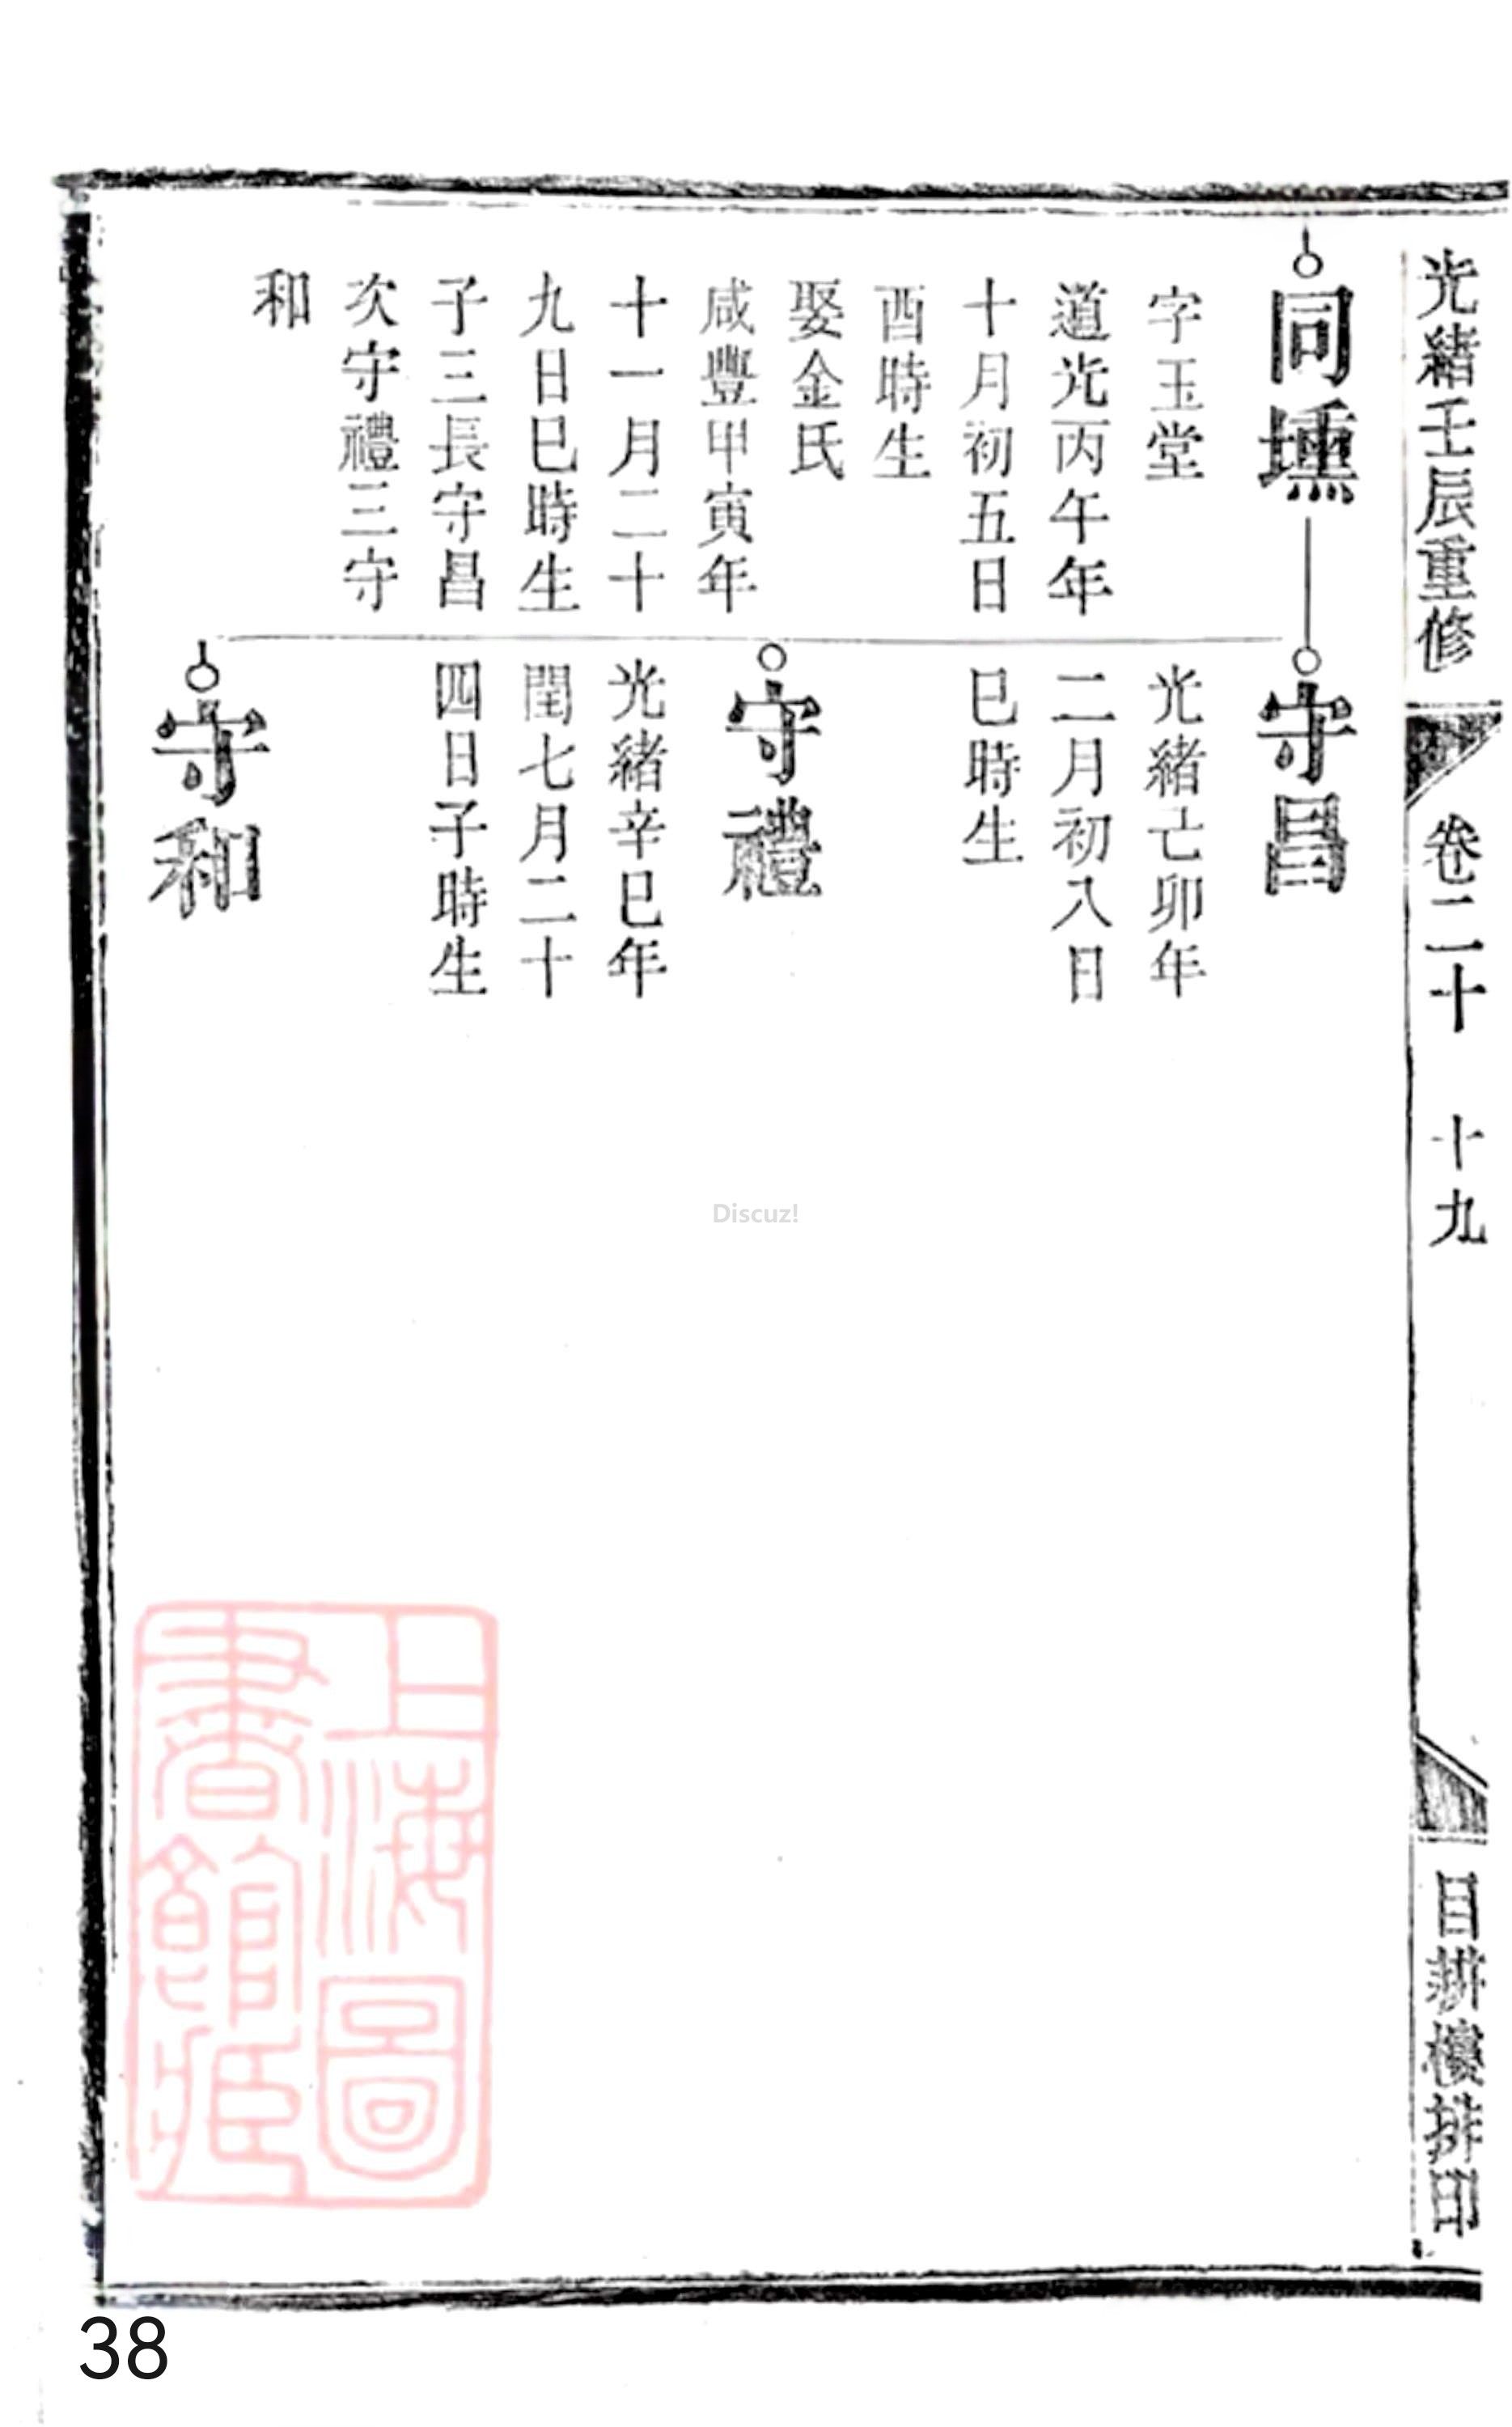 光緒壬辰重修
卷二十
十九
目耕樓排印
同壎
字玉堂
道光丙午年
十月初五日
酉時生
娶金氏
咸豐甲寅年
十一月二十
九日巳時生
子三長守昌
次守禮三守
和
守昌
光緒己卯年
二月初八日
巳時生
守禮
光緒辛巳年
閏七月二十
四日子時生
守和
Discuz!
上海圖
書館藏
38